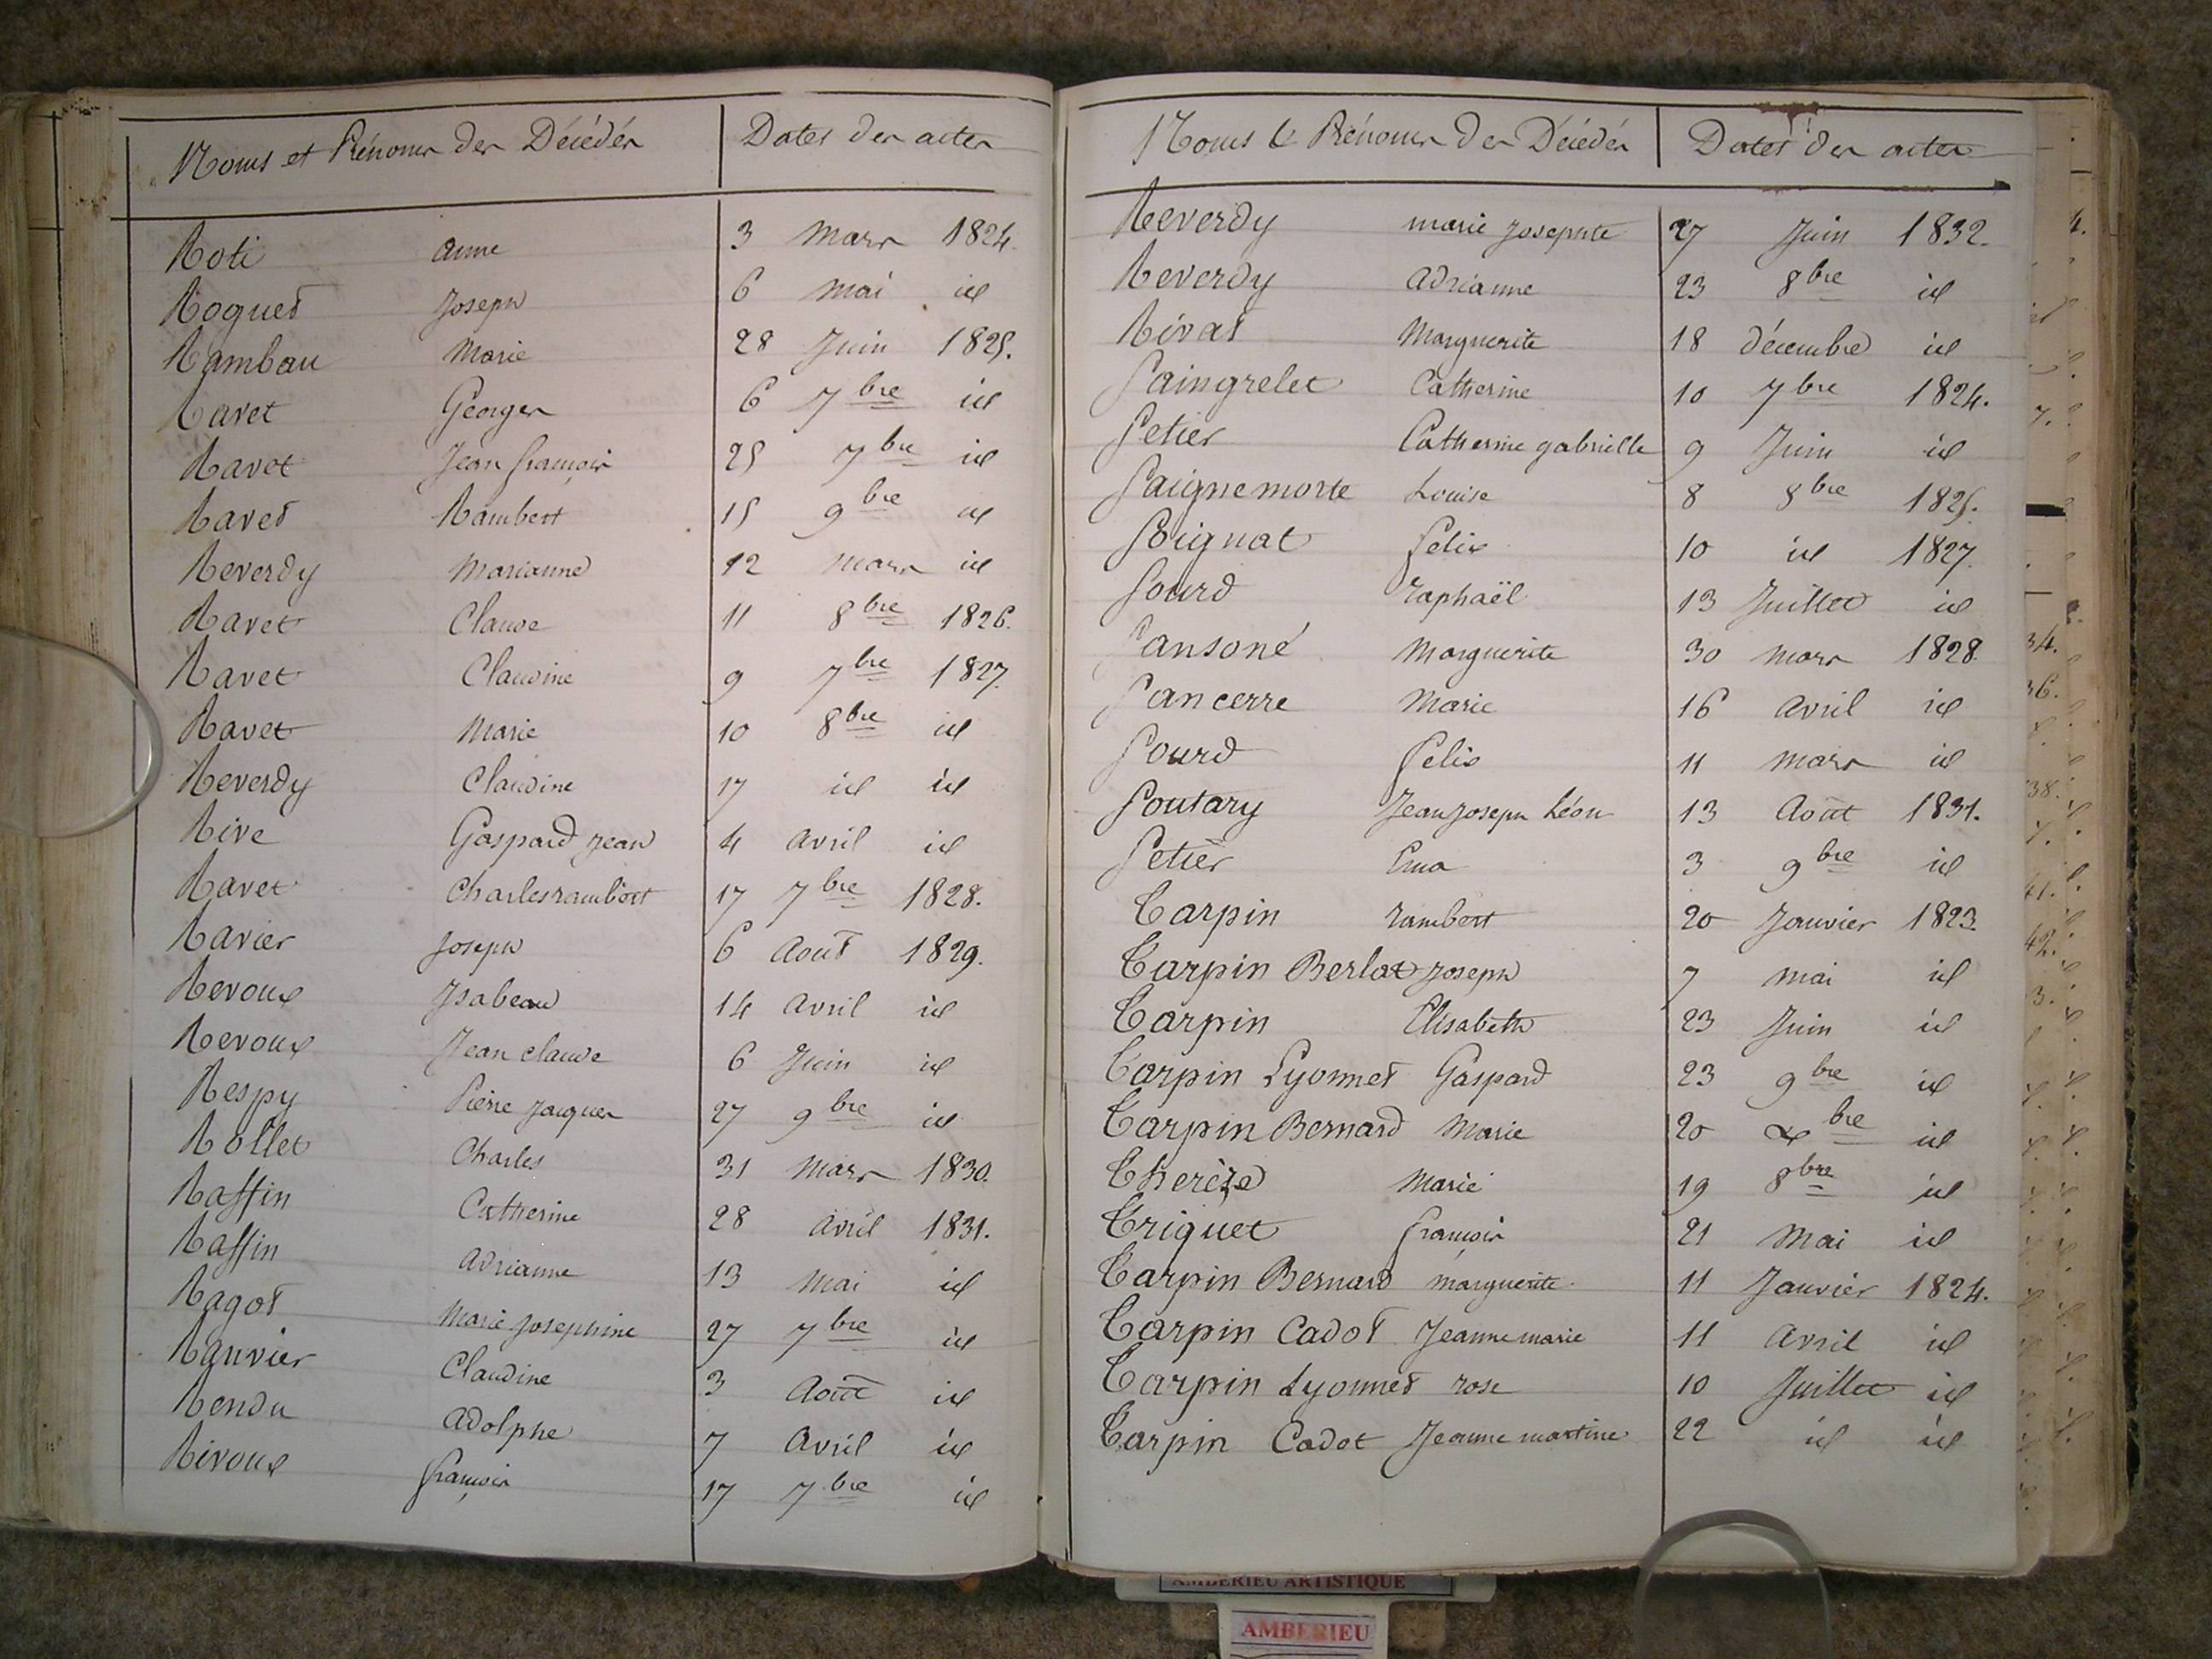 Noms et Prénoms des Décédés Dates des actes
Roti anne 3 Mars 1824.
Roguet Joseph 6 Mai id
Rambau Marie 28 Juin 1825.
Ravet Georges 6 7bre id
Ravet Jean françois 25 7bre id
Ravet Rambert 15 9bre id
Reverdy Marianne 12 mars id
Ravet Claude 11 8bre 1826.
Ravet Claudine 9 7bre 1827.
Ravet Marie 10 8bre id
Reverdy Claudine 17 id id
Rive Gaspard Jean 4 avril id
Ravet Charles rambert 17 7bre 1828.
Ravier Joseph 6 Aout 1829.
Revoux Isabeau 14 avril id
Revoux Jean claude 6 Juin id
Respy Pierre Jacques 27 9bre id
Rollet Charles 31 Mars 1830.
Raffin Catherine 28 avril 1831.
Raffin Adrianne 13 Mai id
Ragot Marie Josephine 27 7bre id
Rauvier Claudine 3 Août id
Rendu Adolphe 7 Avril id
Rivoux françois 17 7bre id
Noms & Prénoms des Décédés Dates des actes
Reverdy marie Josephte 27 Juin 1832.
Reverdy Adrianne 23 8bre id
Rivat Marguerite 18 décembre id
Saingrelet Catherine 10 7bre 1824.
Setier Catherine gabrielle 9 Juin id
Saignemorte Louise 8 8bre 1825.
Soignat felix 10 id 1827.
Sourd raphaël 13 Juillet id
Sansoné Marguerite 30 mars 1828.
Sancerre Marie 16 avril id
Sourd felix 11 mars id
Soutary Jean Joseph Léon 13 Août 1831.
Setier Ema 3 9bre id
Tarpin rambert 20 Janvier 1823.
Tarpin Berlat Joseph 7 mai id
Tarpin Elisabeth 23 Juin id
Tarpin Lyonnet Gaspard 23 9bre id
Tarpin Bernard Marie 20 Xbre id
Therèze Marie 19 8bre id
Triquet françois 21 Mai id
Tarpin Bernard marguerite 11 Janvier 1824.
Tarpin Cadot Jeanne marie 11 avril id
Tarpin Lyonnet rose 10 Juillet id
Tarpin Cadot Jeanne martine 22 id id
AMBERIEU ARTISTIQUE
AMBERIEU